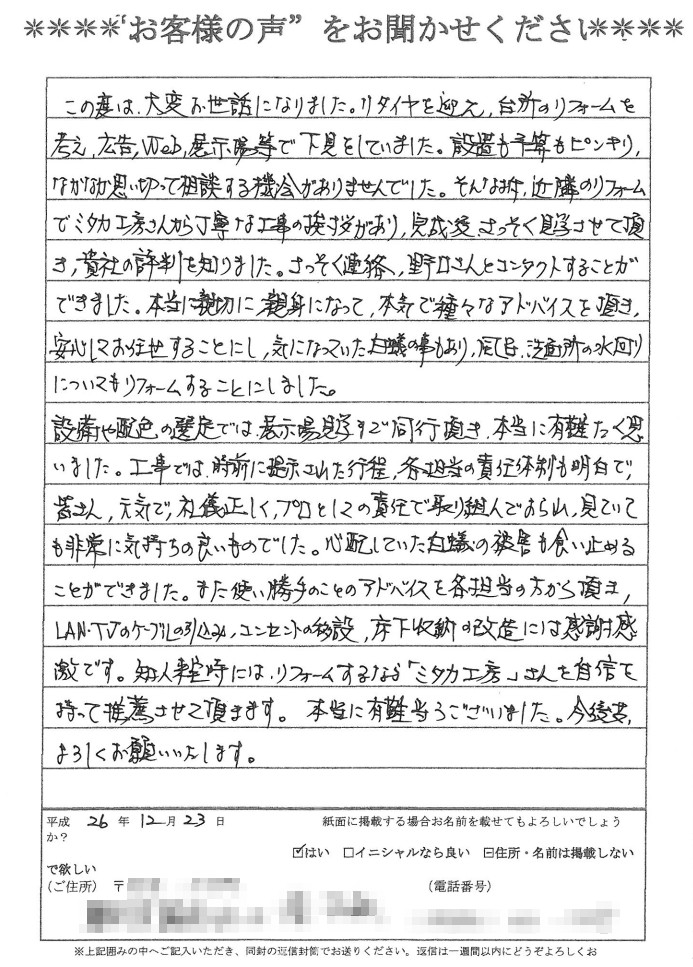 ****"お客様の声" をお聞かせください****
この度は、大変お世話になりました。リタイヤを迎え、台所のリフォームを
考え、広告、Web、展示場等で下見をしていました。設置も予算もピンキリ、
なかなか思い切って相談する機会がありませんでした。そんな折、近隣のリフォーム
でミタカ工房さんから丁寧な工事の挨拶があり、完成後、さっそく見学させて頂
き、貴社の評判を知りました。さっそく連絡、野口さんとコンタクトすることが
できました。本当に親切に親身になって、本気で種々なアドバイスを頂き、
安心してお任せすることにし、気になっていた白蟻の事もあり、風呂、洗面所の水回り
についてもリフォームすることにしました。
設備や配色の選定では展示場見学まで同行頂き、本当に有難たく思
いました。工事では、時前に提示された行程、各担当の責任体制も明白で、
皆さん、元気で、礼儀正しく、プロとしての責任で取り組んでおられ、見ていて
も非常に気持ちの良いものでした。心配していた白蟻の被害も食い止める
ことができました。また使い勝手のことのアドバイスを各担当の方から頂き、
LAN・TVのケーブルの引込み、コンセントの移設、床下収納の改造には感謝感
激です。知人来宅時には、リフォームするなら「ミタカ工房」さんを自信を
持って推薦させて頂きます。 本当に有難うございました。今後共、
よろしくお願いいたします。
平成 26 年 12 月 23 日 紙面に掲載する場合お名前を載せてもよろしいでしょう
か?
☑はい □イニシャルなら良い □住所・名前は掲載しない
で欲しい
(ご住所) 〒 (電話番号)
※上記囲みの中へご記入いただき、同封の返信封筒でお送りください。返信は一週間以内にどうぞよろしくお